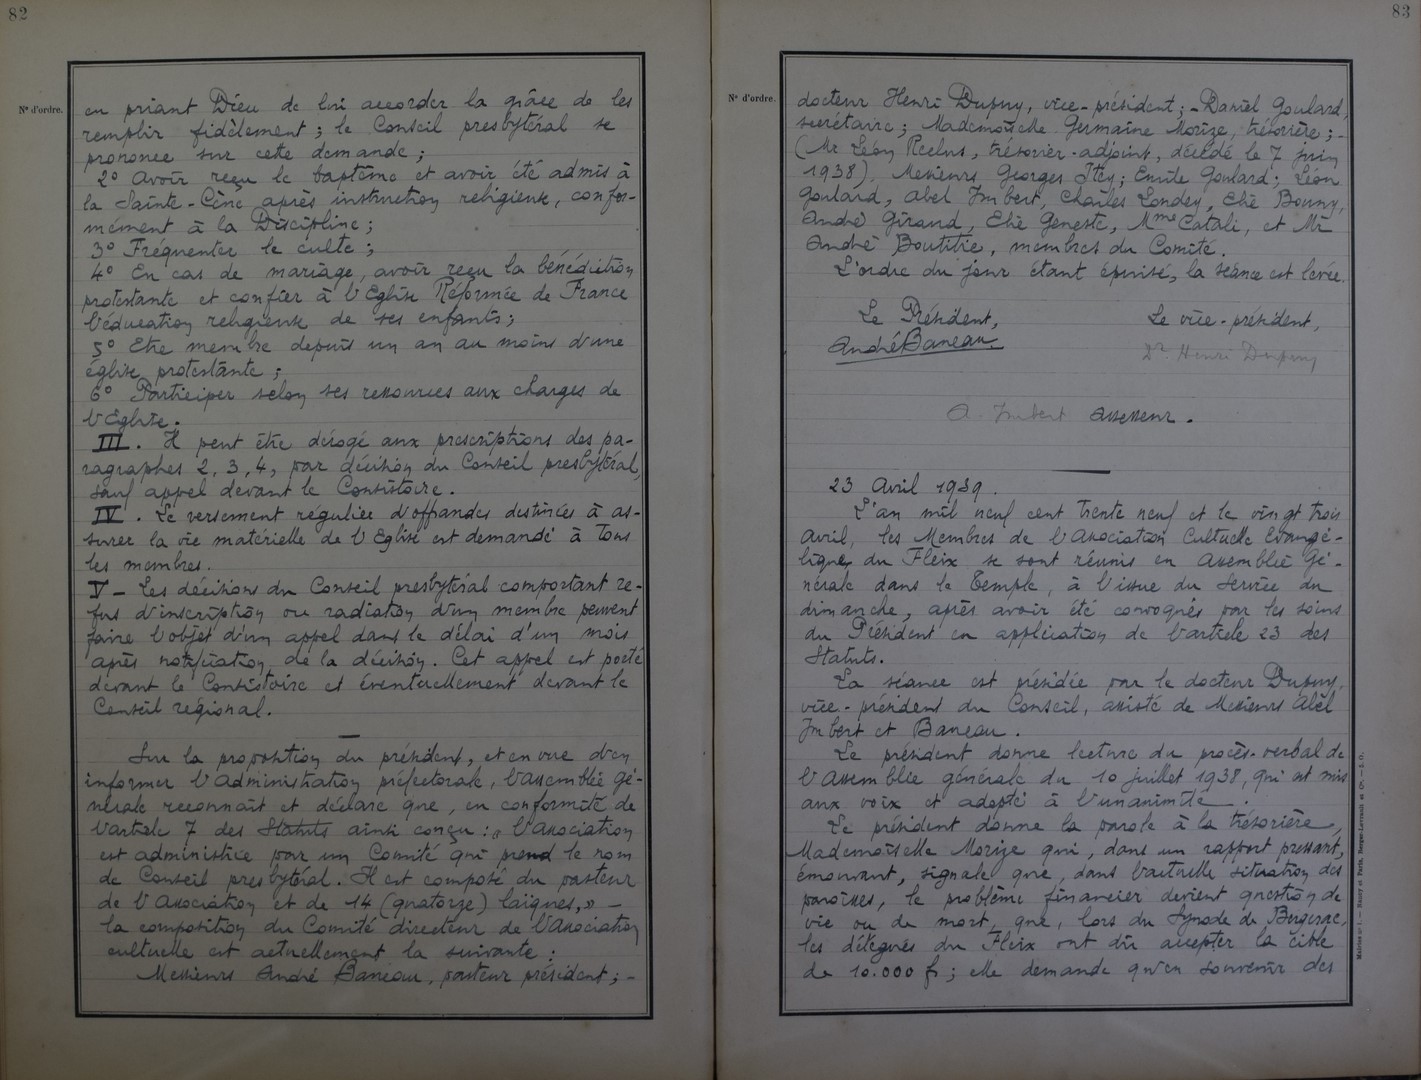 82
N° d'ordre.
en priant Dieu de lui accorder la grâce de les
remplir fidèlement ; le Conseil presbytéral se
prononce sur cette demande ;
2° Avoir reçu le baptême et avoir été admis à
la Sainte-Cène après instruction religieuse, confor-
mément à la Discipline ;
3° Fréquenter le culte ;
4° En cas de mariage, avoir reçu la bénédiction
protestante et confier à l'Eglise Réformée de France
l'éducation religieuse de ses enfants ;
5° Etre membre depuis un an au moins d'une
église protestante ;
6° Participer selon ses ressources aux charges de
l'Eglise.
III. Il peut être dérogé aux prescriptions des pa-
ragraphes 2, 3, 4, par décision du Conseil presbytéral,
sauf appel devant le Consistoire.
IV. Le versement régulier d'offrandes destinées à as-
surer la vie matérielle de l'Eglise est demandé à tous
les membres.
V - Les décisions du Conseil presbytéral comportant re-
fus d'inscription ou radiation d'un membre peuvent
faire l'objet d'un appel dans le délai d'un mois
après notification de la décision. Cet appel est porté
devant le Consistoire et éventuellement devant le
Conseil régional.
Sur la proposition du président, et en vue d'en
informer l'administration préfectorale, l'assemblée gé-
nérale reconnaît et déclare que, en conformité de
l'article 7 des Statuts ainsi conçu : « l'Association
est administrée par un Comité qui prend le nom
de Conseil presbytéral. Il est composé du pasteur
de l'Association et de 14 (quatorze) laïques, » –
la composition du Comité directeur de l'Association
cultuelle est actuellement la suivante :
Messieurs André Baneau, pasteur président ; -
83
N° d'ordre.
docteur Henri Dupuy, vice-président ; - Daniel Goulard,
secrétaire ; Mademoiselle Germaine Morize, trésorière ; -
(Mr Léon Reclus, trésorier-adjoint, décédé le 7 juin
1938). Messieurs Georges Itey ; Emile Goulard ; Léon
Goulard, Abel Imbert, Charles Londey, Elie Bonny,
André Girand, Elie Geneste, Mme Catali, et Mr
André Boutitie, membres du Comité.
L'ordre du jour étant épuisé, la séance est levée.
Le Président,
Le vice-président,
André Baneau
Dr. Henri Dupuy
A. Imbert assesseur.
23 Avril 1939.
L'an mil neuf cent trente neuf et le vingt trois
avril, les Membres de l'Association Cultuelle Evangé-
lique du Fleix se sont réunis en Assemblée Gé-
nérale dans le Temple, à l'issue du service du
dimanche, après avoir été convoqués par les soins
du Président en application de l'article 23 des
Statuts.
La séance est présidée par le docteur Dupuy,
vice-président du Conseil, assisté de Messieurs Abel
Imbert et Baneau.
Le président donne lecture du procès-verbal de
l'Assemblée générale du 10 juillet 1938, qui est mis
aux voix et adopté à l'unanimité.
Le président donne la parole à la trésorière,
Mademoiselle Morize qui, dans un rapport pressant,
émouvant, signale que, dans l'actuelle situation des
paroisses, le problème financier devient question de
vie ou de mort, que, lors du Synode de Bergerac,
les délégués du Fleix ont dû accepter la cible
de 10.000 f ; elle demande qu'en souvenir des
Nancy et Paris, Berger-Levrault et Cie.